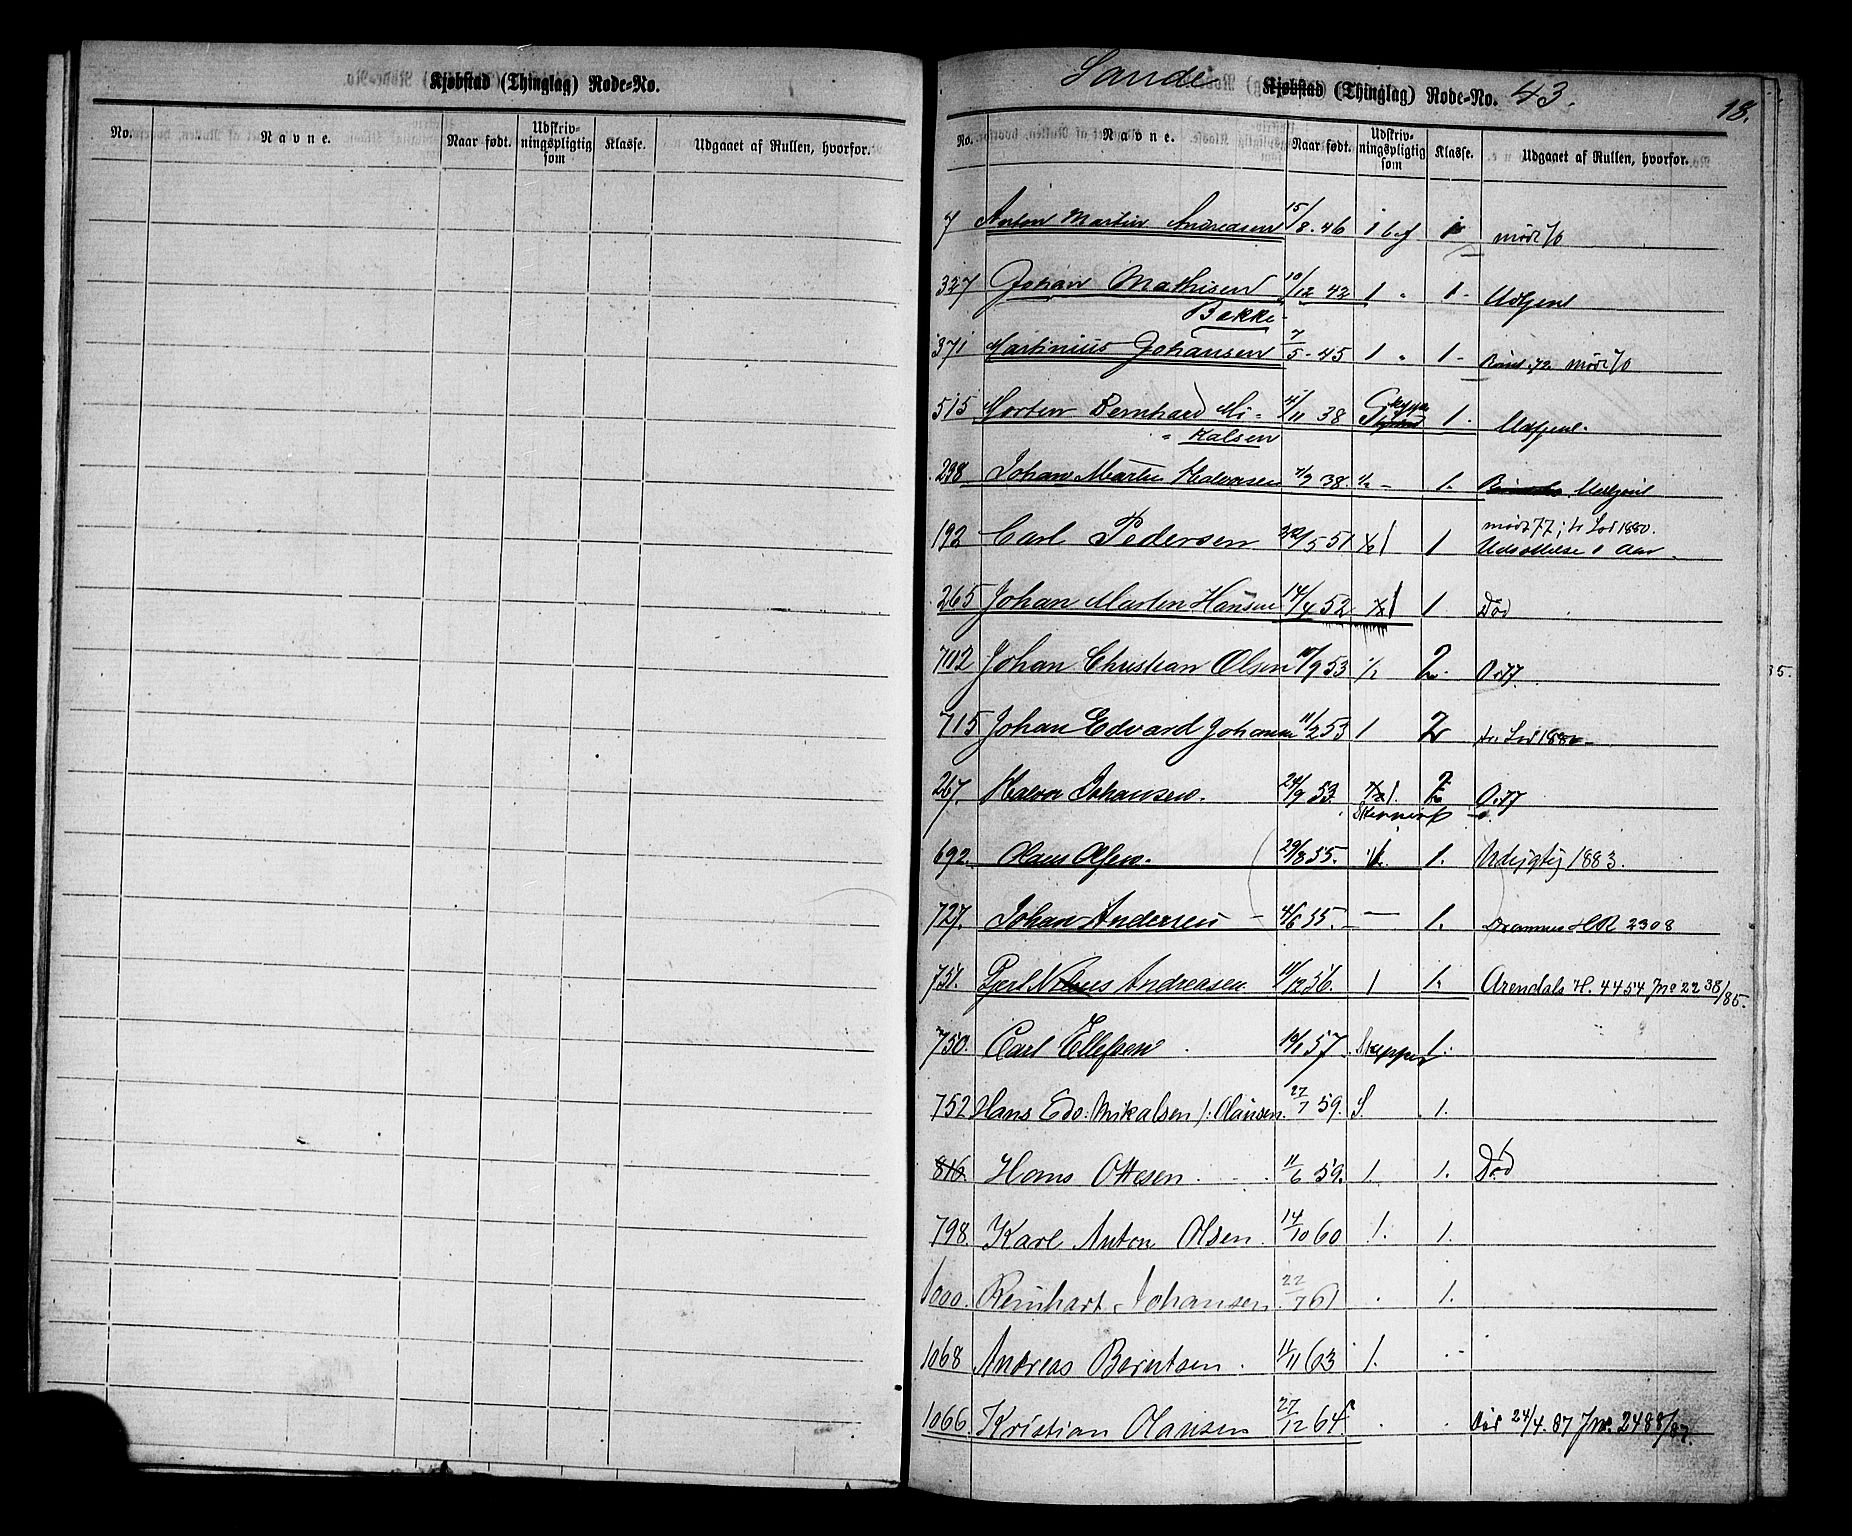 Kjøbstad (Thinglag) Rode-No.
No. Navne. Naar født. Udskriv-ningspligtig som Klasse. Udgaaet af Rullen, hvorfor.
Sande Kjøbstad (Thinglag) Rode-No. 43.
18.
No. Navne. Naar født. Udskriv-ningspligtig som Klasse. Udgaaet af Rullen, hvorfor.
7 Anton Martin Andreasen 15/8-46 1
327 Johan Mathisen 10/12 42 1 " 1- Udtjent
Bakke-
371 Martinius Johansen 7/5-45 1 " 1-
515 Morten Bernhard Mi- /11 38 1. Udtjent
kalsen
238 Johan Martin 38. 1. Udtjent
192 Carl Pedersen /5 51 1 1 mødt 77; fr Lod 1880.
Udsættelse 1 Aar.
265 Johan Martin Hansen 14/4 52 1 1. Død
702 Johan Christian Olsen /9 53 2.
715 Johan Edvard Johansen 11/2 53 1 2 fr. Lod 1880-
267. Halvor Johansen. 24/9 53 1. 2
692. Olaus Olsen. 29/8 55. 1. 1883.
727. Johan Andersen - 4/6 55. - 1. Drammens HR 2308
751. Andreasen 11/12 56. 1 1. Arendals H. 4454 Jno 2238/85.
750. Carl Ellefsen 57. Skipper 1.
752 Hans Edv: Mikalsen /: Olausen. 27/7 59. S. 1.
816. Hans Ottesen. 11/6 59. 1. 1. Død
798. Karl Anton Olsen. 14/10 60 1. 1.
1000. Reinhart Johansen 22/7 61 . 1.
1068 Andreas Berntsen. 11/11 63 1.
1066. Kristian Olausen 27/12 64. Død 24/4. 87 Jno. 2488/87.